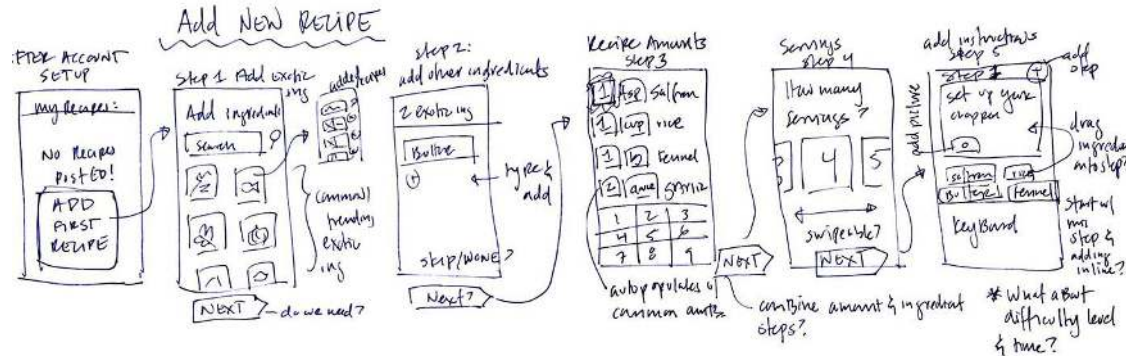 Add NEW RECIPE
FTER ACCOUNT
SETUP
my Recipes:
No Recipes
POSTED!
ADD
FIRST
RECIPE
Step 1 Add Exotic
ing
Add ingredients
Search
common/
trending
exotic
ing
NEXT
do we need?
step 2:
add other ingredients
2 exotic ing
Butter
type &
add
skip/NONE?
Next?
Recipe Amounts
Step 3
1 tsp Saffron
1 cup rice
1 lb Fennel
2
1 2 3
4 5 6
7 8 9
NEXT
autopopulates w/
common amts.
combine amount & ingredient
steps?
Servings
Step 4
How many
servings?
3 4 5
swipeable?
NEXT
add picture
add instructions
Step 5
Step 1
+
add
step
set up your
chopper
drag
ingredient
into step?
saffron rice
Butter Fennel
KeyBoard
Start w/
step &
adding
inline?
* What about
difficulty level
& time?